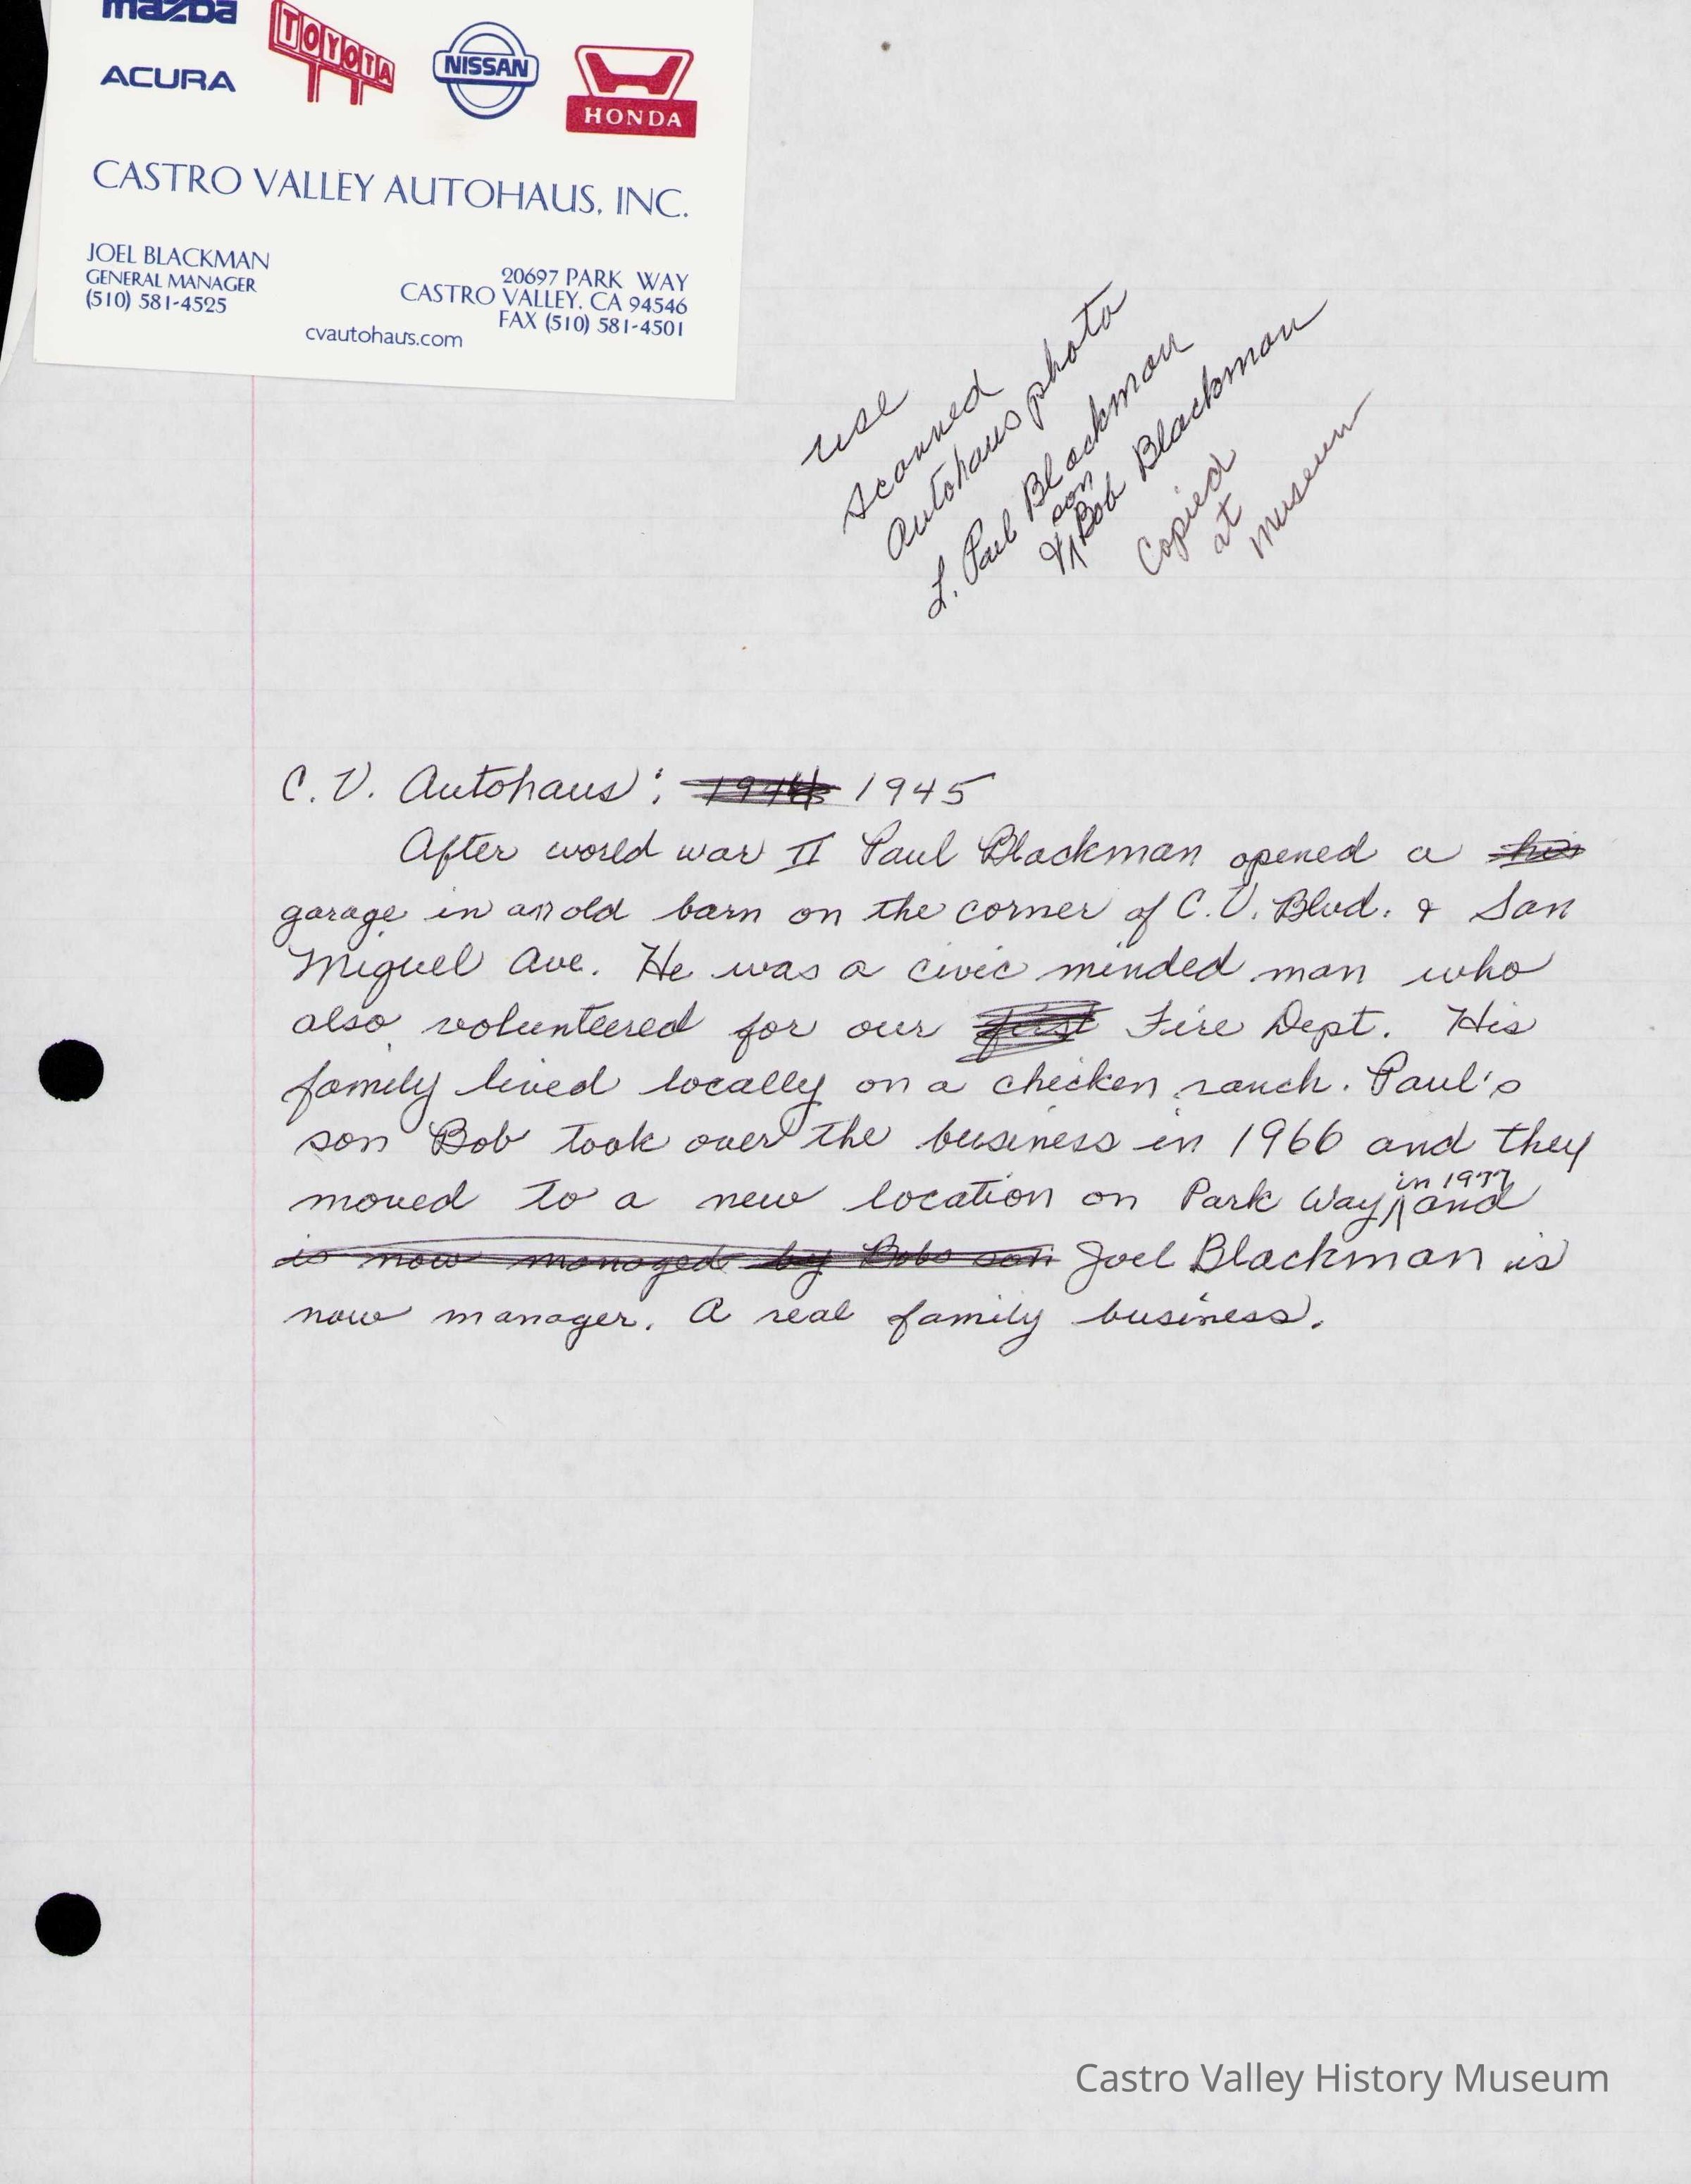 mazda
TOYOTA
NISSAN
HONDA
ACURA
CASTRO VALLEY AUTOHAUS, INC.
JOEL BLACKMAN
GENERAL MANAGER
(510) 581-4525
20697 PARK WAY
CASTRO VALLEY, CA 94546
FAX (510) 581-4501
cvautohaus.com
use
scanned
Autohaus photo
L. Paul Blackman
& son Bob Blackman
Copied
at
museum
C.V. Autohaus: 1944 1945
After world war II Paul Blackman opened a his
garage in an old barn on the corner of C.V. Blvd. & San
Miguel Ave. He was a civic minded man who
also volunteered for our first Fire Dept. His
family lived locally on a chicken ranch. Paul's
son Bob took over the business in 1966 and they
moved to a new location on Park Way in 1977 and
is now managed by Bobs son Joel Blackman is
now manager. A real family business.
Castro Valley History Museum